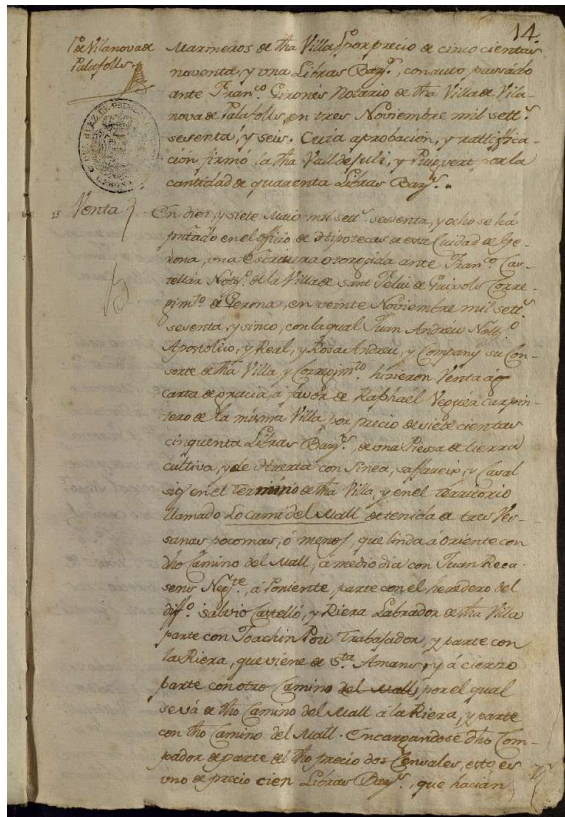 14.
Tº de Vilanova de
Palafolls
Marineros de dha Villa por precio de cinco cientas
noventa, y una Libras Barsª. con auto passado
ante Franco Gironès Notario de dha Villa de Vila-
nova de Palafolls, en tres Noviembre mil settª.
sesenta, y seis. Cuia aprobacion, y rattifica-
cion firmó la dha Vall de y Ruipvert por la
cantidad de quarenta Libras Barsª.
15 Venta
En diez, y siete Maio mil settª. sesenta, y ocho se há
pntado en el officio de Hipotecas de esta Ciudad de Ge-
rona, una Escritura otorgida ante Franco Cas-
tellar Notº. de la Villa de sant Feliu de Guixols Corre-
gimto. de Gerona, en veinte Noviembre mil settª.
sesenta, y sinco, con la qual Juan Andreu Nottº.
Apostolico, y Real, y Rosa Andreu, y Company su Con-
sorte de dha Villa, y Corregimto hizieron Venta á
carta de gracia, á favor de Raphael carpin-
tero de la misma Villa, por precio de siete cientas
cinquenta Libras Barsª. de una Piessa de tierra
cultiva, y de Huerta con Sinea, saffareix, y Casal
en el termino de dha Villa, y en el territorio
llamado Lo camí del Mall de tenida de tres Ves-
sanas poco mas, o menos, que linda á Oriente con
dho Camino del Mall, á medio dia con Juan Reca-
sens Negte, á Poniente, parte con el heredero del
diffº. Salvio Castelló, y Riera Labrador de dha Villa
parte con Joachin Trabajador, y parte con
la Riera, que viene de Sta Amans, y á cierzo
parte con otro Camino del Mall, por el qual
se vá de dho Camino del Mall á la Riera, y parte
con dho Camino del Mall. Encargandose dho Com-
pador de parte del dho precio dos Censales, esto es
uno de precio cien Libras Barsª. que hacian